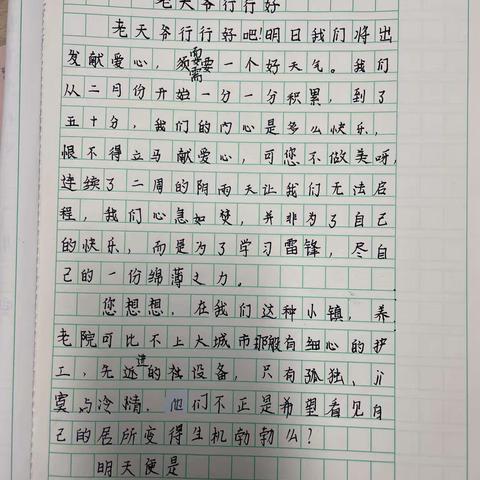 老天爷行行好
老天爷行行好吧!明日我们将出
发献爱心,须要需要一个好天气。我们
从二月份开始一分一分积累,到了
五十分,我们的内心是多么快乐,
恨不得立马献爱心,可您不做美呀,
连续了二周的阴雨天让我们无法启
程,我们心急如焚,并非为了自己
的快乐,而是为了学习雷锋,尽自
己的一份绵薄之力。
您想想,在我们这种小镇,养
老院可比不上大城市那般有细心的护
工,先进的设备,只有孤独、ji
寞与冷清,他们不正是希望看见自
己的居所变得生机勃勃么?
明天便是